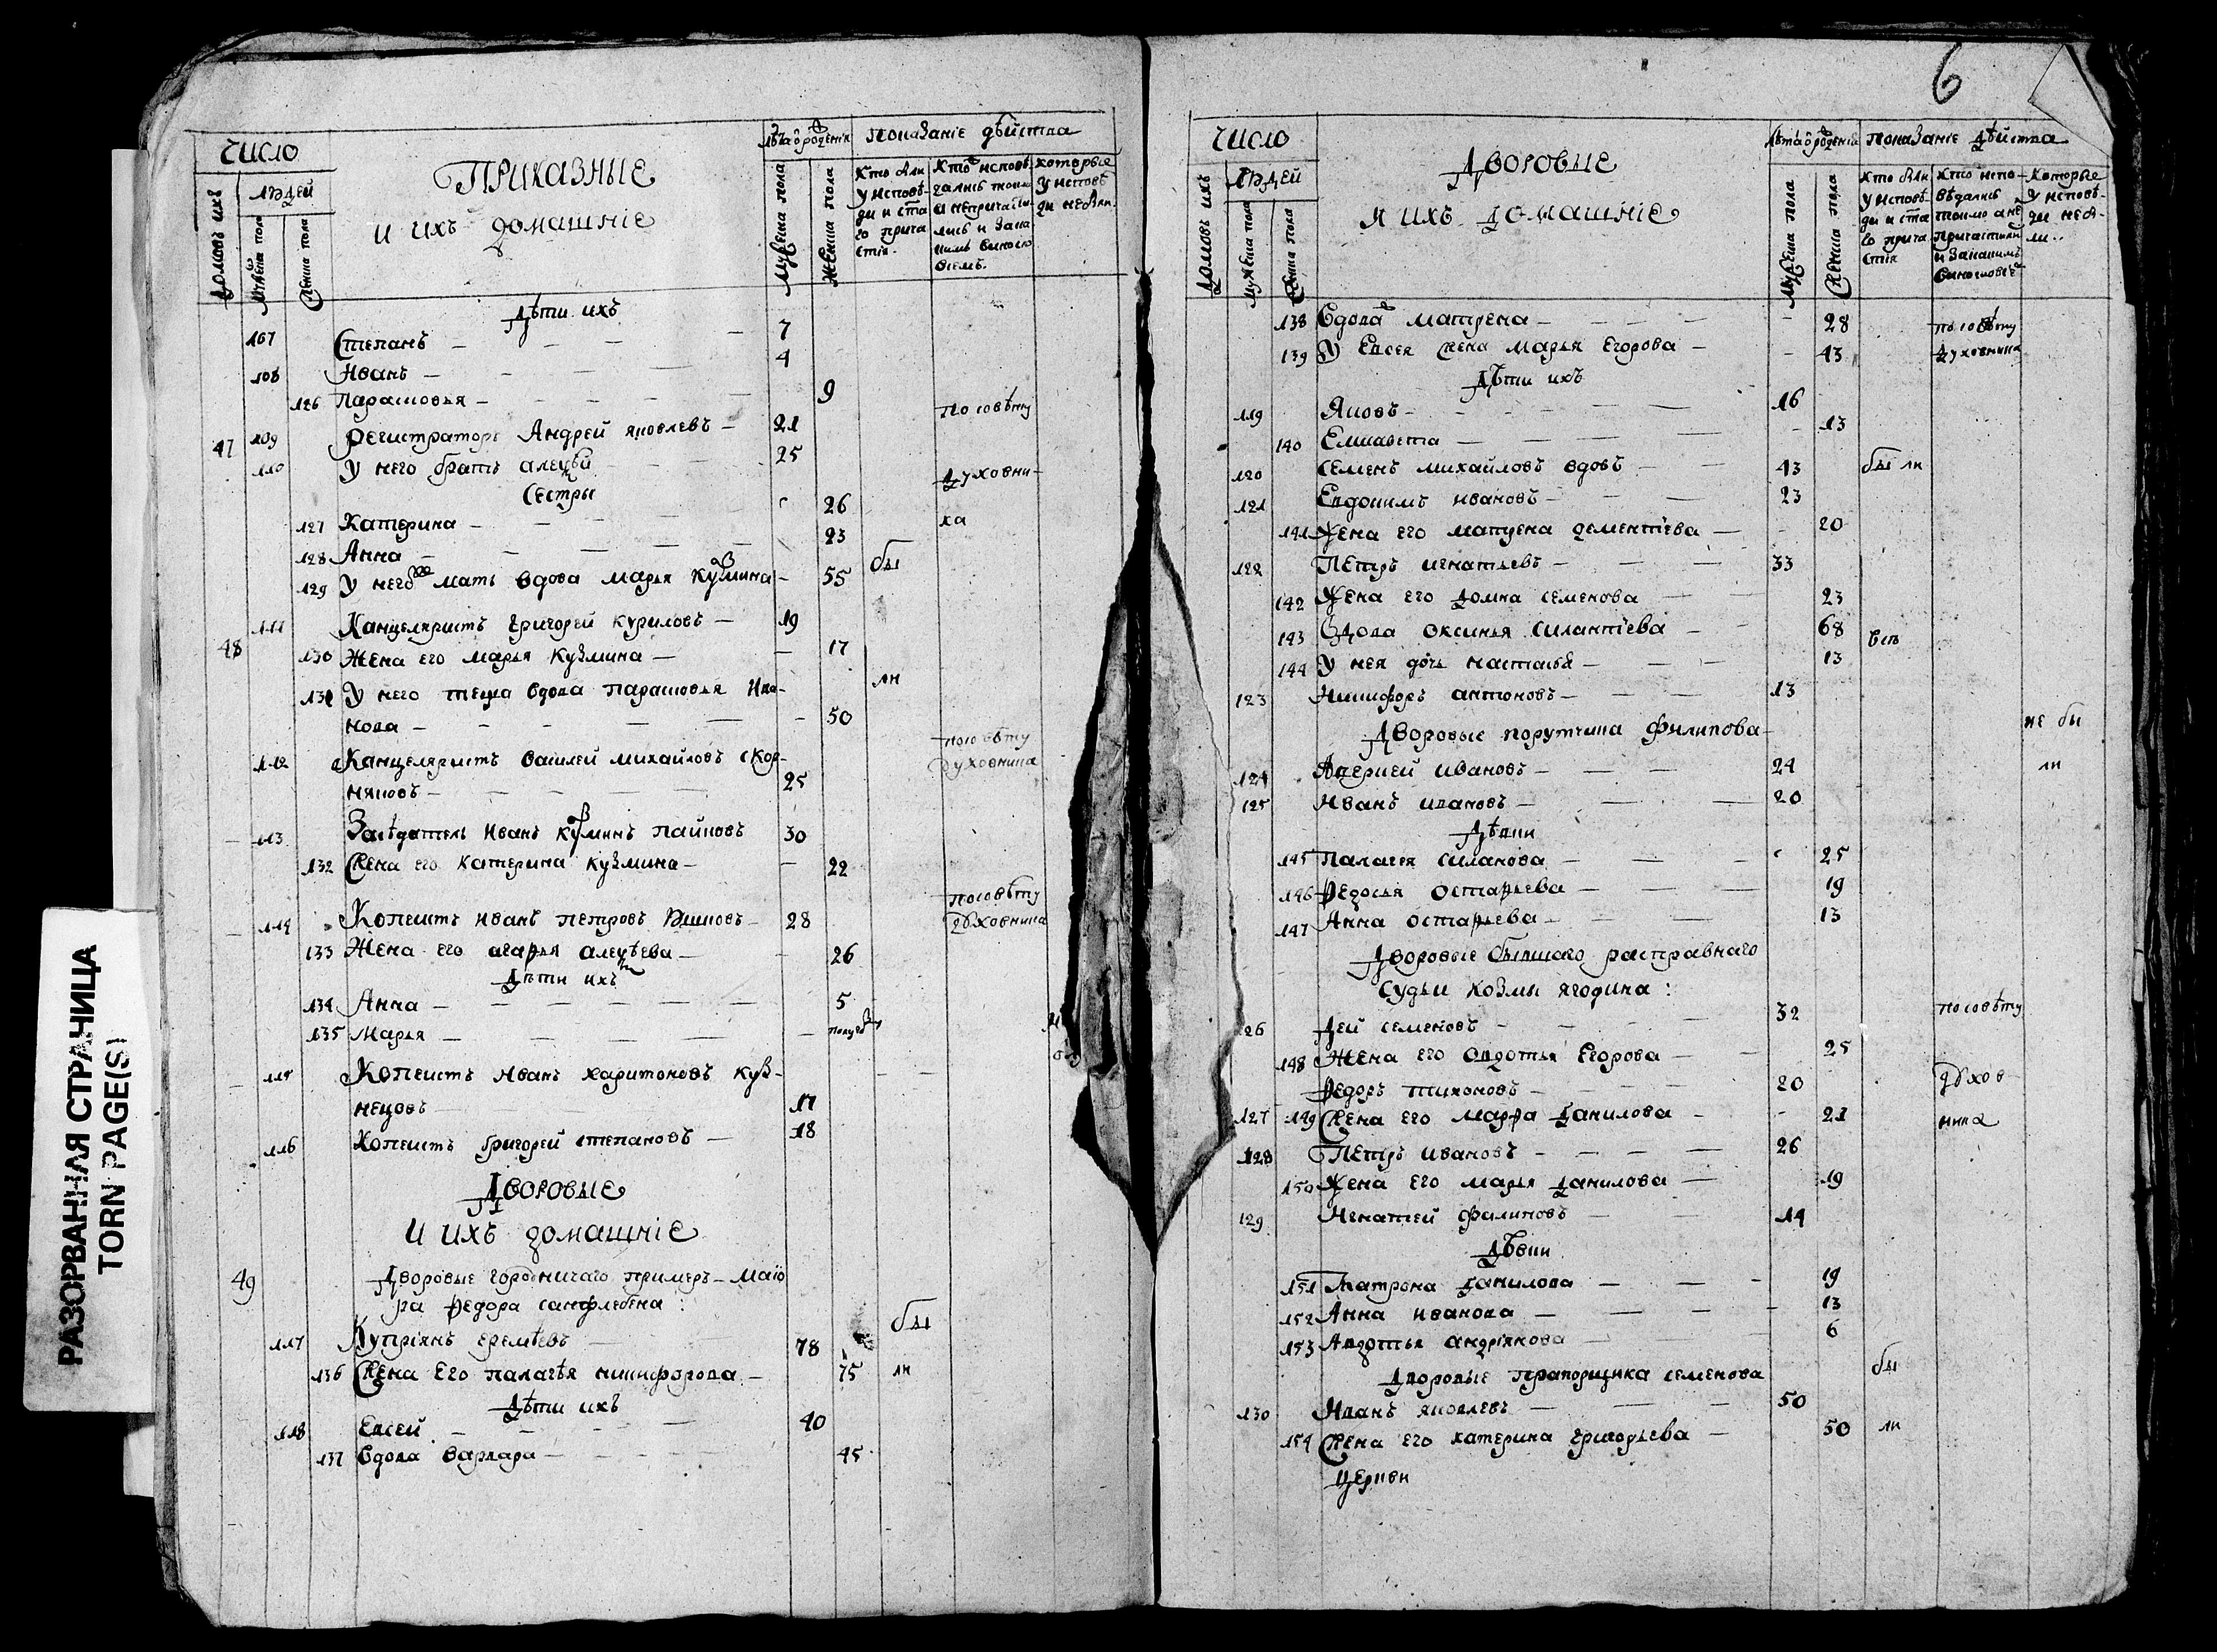 РАЗОРВАННАЯ СТРАНИЦА
TORN PAGE(S)
число
домовъ ихъ
людей
мужеска пола
женска пола
Приказные
и ихъ домашніе
лѣта ѿ рожденія
мужеска пола
женска пола
показаніе дѣйства
кто были у исповѣди и свята го прича стія.
которые у исповѣ ди не были.
Дѣти ихъ
107 Степанъ — 7
108 Иванъ — 4
126 Парасковья — 9
47 109 регистраторъ Андрей яковлевъ — 21 по совѣту
110 У него братъ алеѯѣй 25
Сестры духовни-
127 Катерина — 26 ка
128 Анна — 23
129 У него же мать вдова марья кузмина — 55 бы
48 111 Канцеляристъ григорей куриловъ — 19
130 Жена его марья кузмина — 17
131 У него теща вдова парасковья Ива- ли
нова — 50
112 Канцеляристъ василей михайловъ скор- по совѣту
няковъ — 25 духовника
113 Засѣдатель Иванъ кузминъ пайковъ 30
132 Жена его катерина кузмина — 22
по совѣту
114 Копеистъ иванъ петровъ — 28 духовника
133 Жена его агафья алеѯѣева — 26
Дѣти ихъ
134 Анна — 5
135 Марья — полугоду
115 Копеистъ иванъ харитоновъ куз-
нецовъ 17
116 Копеистъ григорей степановъ — 18
Дворовые
и ихъ домашніе
49 Дворовые городничаго примеръ-маіо
ра федора санфлебена :
117 Купріянъ еремѣевъ 78 бы
136 Жена его палагѣя никифорова — 75 ли
Дѣти ихъ
118 Евсей — 40
137 вдова варвара — 45
6
число
домовъ ихъ
людей
мужеска пола
женска пола
Дворовые
и ихъ домашніе
лѣта ѿ рожденія
мужеска пола
женска пола
показаніе дѣйства
кто были у исповѣ ди и свята го прича стія
которые у исповѣ- ди не бы- ли..
138 Вдова матрена — 28 по совѣту
139 У Евсея жена марья Егорова — 43 духовника
Дѣти ихъ
119 Яковъ — 16
140 Елисавета — 13
120 Семенъ михайловъ вдовъ — 43 бы ли
121 Евдокимъ ивановъ — 23
141 Жена его матрена дементіева — 20
122 Петръ игнатьевъ — 33
142 Жена его домна семенова 23
143 Вдова оксинья силантіева — 68 бы
144 У нея дочь настасья — 13
123 Никифоръ антоновъ — 13
Дворовые порутчика филипова не бы
124 Аверкей ивановъ — 24 ли
125 Иванъ ивановъ — 20
Дѣвки
145 Палагея силанова — 25
146 Федосья остафьева — 19
147 Анна остафьева — 13
Дворовые бывшаго расправнаго
судьи козмы ягодина :
126 семеновъ — 32 по совѣту
148 Жена его авдотья Егорова — 25
Федоръ тихоновъ — 20 духов
127 149 Жена его марфа данилова — 21 ника
128 Петръ ивановъ — 26
150 Жена его марья данилова — 19
129 Игнатей филиповъ — 14
Дѣвки
151 Матрона данилова — 19
152 Анна иванова — 13
153 Авдотья андріянова 6
Дворовые прапорщика семенова бы
130 Иванъ яковлевъ — 50
154 Жена его катерина григорьева — 50 ли
церкви